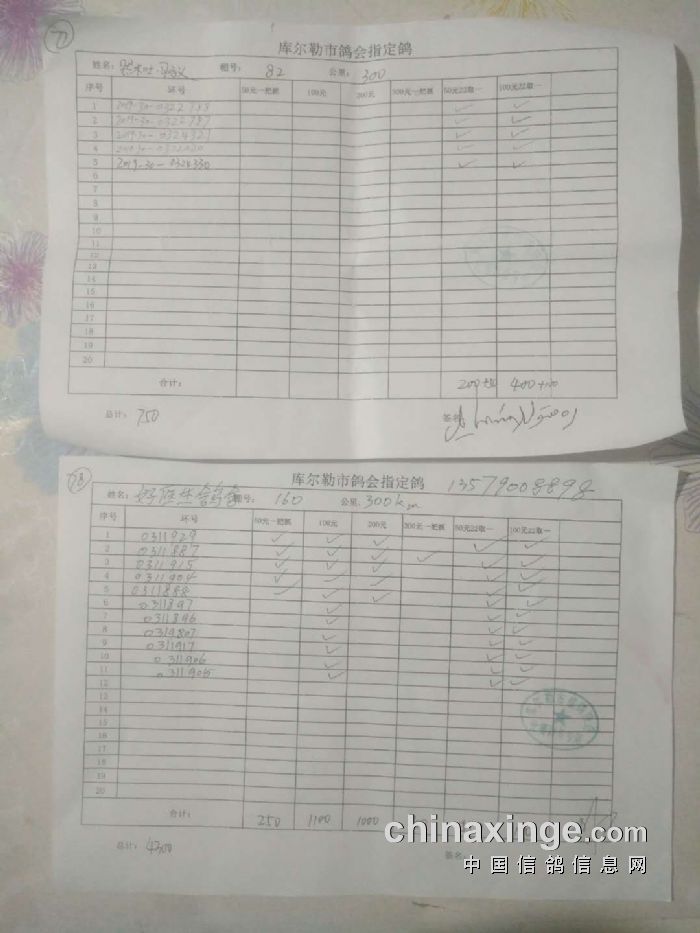 72
库尔勒市鸽会指定鸽
姓名： 棚号： 82 公里： 300
序号 环号 50元一把抓 100元 200元 300元一把抓 50元22取一 100元22取一
1 2019-30-0322788 ✓ ✓
2 2019-30-0322787 ✓ ✓
3 2019-30-0324327 ✓ ✓
4 ✓ ✓
5 2019-30-0324330 ✓ ✓
6
7
8
9
10
11
12
13
14
15
16
17
18
19
20
合计： 200+50 400+100
总计： 750 签名
73
库尔勒市鸽会指定鸽 13579008898
姓名： 棚号： 160 公里： 300km
序号 环号 50元一把抓 100元 200元 300元一把抓 50元22取一 100元22取一
1 0311929 ✓ ✓ ✓ ✓ ✓
2 0311887 ✓ ✓ ✓ ✓ ✓ ✓
3 0311915 ✓ ✓ ✓ ✓ ✓
4 0311904 ✓ ✓ ✓ ✓ ✓
5 0311888 ✓ ✓ ✓ ✓ ✓
6 0311897 ✓ ✓ ✓
7 0311896 ✓ ✓ ✓
8 0319807 ✓ ✓ ✓
9 0311917 ✓ ✓ ✓
10 0311906 ✓ ✓ ✓
11 0311905 ✓ ✓ ✓
12 ✓ ✓
13
14
15
16
17
18
19
20
合计： 250 1100 1000
总计： 4300 签名
chinaxinge.com
中国信鸽信息网